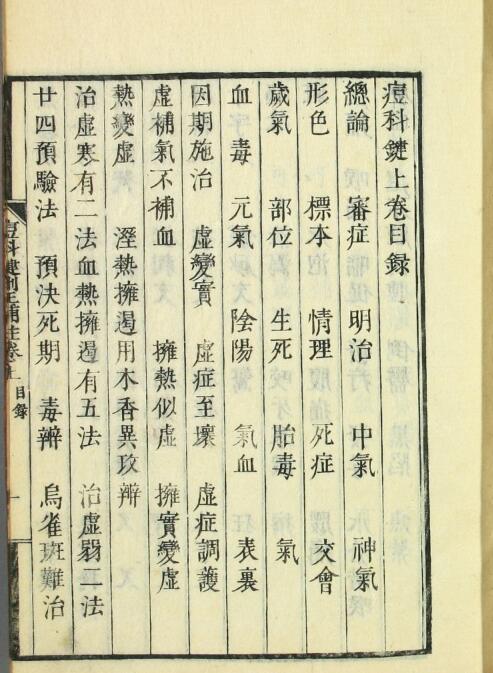 痘科鍵上卷目錄
總論 審症 明治 中氣 神氣
形色 標本 情理 死症 交會
歲氣 部位 生死 胎毒 氣
血毒 元氣 陰陽 氣血 表裏
因期施治 虛變實 虛症至壞 虛症調護
虛補氣不補血 擁熱似虛 擁實變虛
熱變虛 溼熱擁遏用木香異攻辨
治虛寒有二法血熱擁遏有五法 治虛弱二法
廿四預驗法 預決死期 毒辨 烏雀斑難治
痘科鍵刪正補註卷上 目錄 一